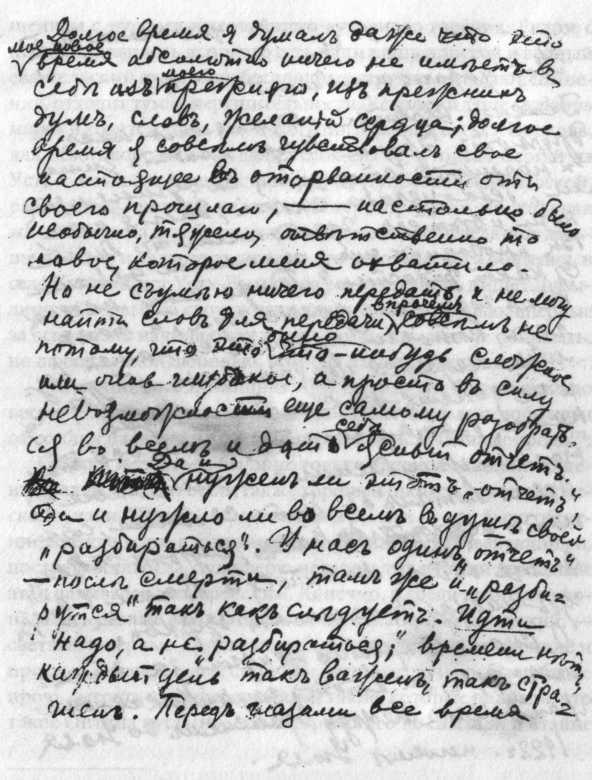 Долгое время я думалъ даже что это
мое новое
время абсолютно ничего не имѣетъ въ
моего
себѣ изъ прежняго, изъ прежнихъ
думъ, словъ, желаній сердца; долгое
время я совсѣмъ чувствовалъ свое
настоящее въ оторванности отъ
своего прошлаго, — настолько было
необычно, тяжело, отвѣтственно то
новое, которое меня охватило.
Но не съумѣю ничего передать и не могу
впрочемъ
найти словъ для передачи совсѣмъ не
было
потому, что это что-нибудь сложное
или очень, а просто въ силу
невозможности еще самому разобрать-
себѣ
ся во всемъ и дать ясный отчетъ.
Да и
нуженъ ли этотъ „отчетъ“
и нужно ли во всемъ въ душѣ своей
„разбираться“. У насъ одинъ „отчетъ“
— послѣ смерти, тамъ же и „разбе-
рутся“ такъ какъ слѣдуетъ. Идти
надо, а не „разбираться“; времени нѣтъ,
каждый день такъ важенъ, такъ стра-
шенъ. Передъ глазами все время